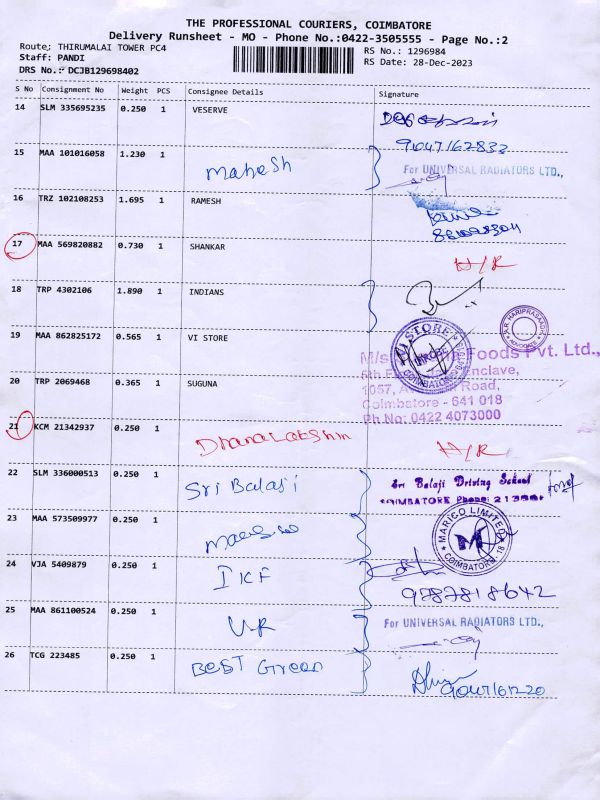 THE PROFESSIONAL COURIERS, COIMBATORE
Delivery Runsheet - MO - Phone No.:0422-3505555 - Page No.:2
Route: THIRUMALAI TOWER PC4
RS No.: 1296984
Staff: PANDI
RS Date: 28-Dec-2023
DRS No.:- DCJB129698402
S No Consignment No Weight PCS Consignee Details Signature
14 SLM 335695235 0.250 1 VESERVE
9047162833
15 MAA 101016058 1.230 1 Mahesh
For UNIVERSAL RADIATORS LTD.,
16 TRZ 102108253 1.695 1 RAMESH
17 MAA 569820882 0.730 1 SHANKAR H/R
18 TRP 4302106 1.890 1 INDIANS
19 MAA 862825172 0.565 1 VI STORE
VI STORE
COIMBATORE
A.R. HARIPRASAADH
ADVOCATE
Foods Pvt. Ltd.,
Enclave,
1057, Road,
Coimbatore - 641 018
Ph No: 0422 4073000
20 TRP 2069468 0.365 1 SUGUNA
21 KCM 21342937 0.250 1 Dhanalakshmi H/R
22 SLM 336000513 0.250 1 Sri Balaji
Sri Balaji Driving School
COIMBATORE Phone:
23 MAA 573509977 0.250 1
MARICO LIMITED
M
COIMBATORE 18
24 VJA 5409879 0.250 1 IKF
9787818642
25 MAA 861100524 0.250 1 UR
For UNIVERSAL RADIATORS LTD.,
26 TCG 223485 0.250 1 BEST Green